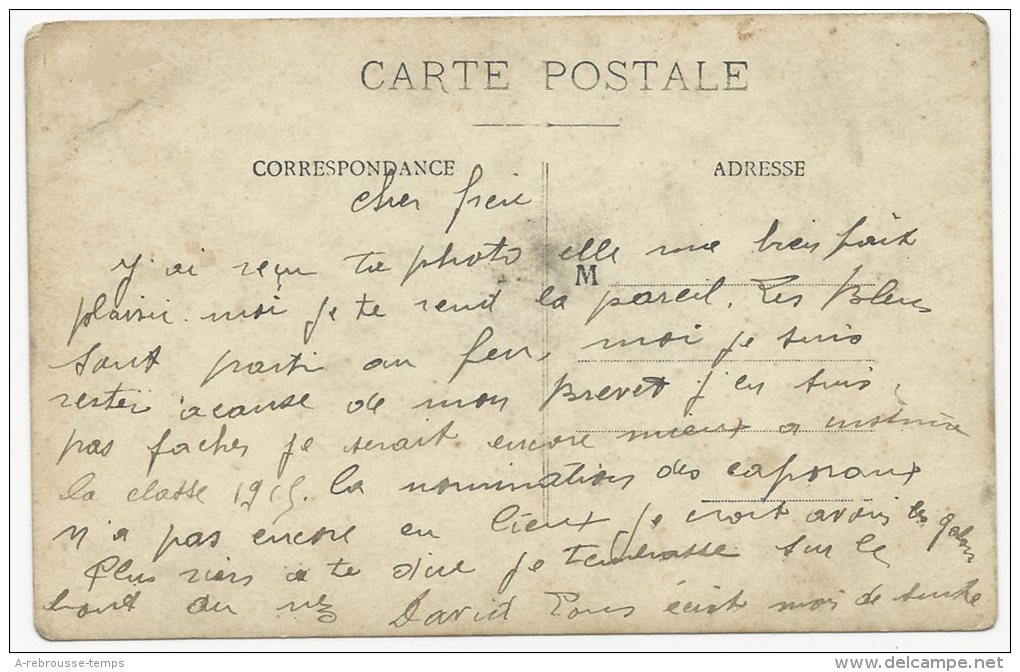 CARTE POSTALE
CORRESPONDANCE
ADRESSE
M
cher frere
J'ai reçu ta photo elle me bien fait
plaisir. moi je te rend la pareil. Les Bleus
sont parti au feu, moi je suis
rester acause de mon Brevet j'en suis
pas facher je serait encore mieux a instruire
la classe 1915. la nomination des caporaux
n'a pas encore eu lieux je croit avoir les galons
Plus rien a te dire je tembrasse sur le
bout du nez David Vous écrit moi de suite
A-rebrousse-temps
delcampe.net